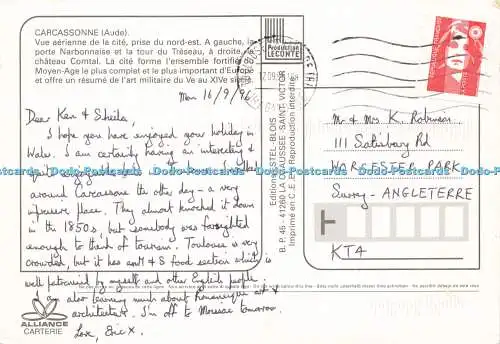 CARCASSONNE (Aude).
Vue aérienne de la cité, prise du nord-est. A gauche, la
porte Narbonnaise et la tour du Tréseau, à droite, le
château Comtal. La cité forme l'ensemble fortifié
Moyen-Age le plus complet et le plus important d'Europe
et offre un résumé de l'art militaire du Ve au XIVe siècle.
Mon 16/9/96
Dear Ken & Sheila,
I hope you have enjoyed your holiday in
Wales. I am certainly having an interesting &
around Carcassonne the other day - a very
impressive place. They almost knocked it down
in the 1850s, but somebody was farsighted
enough to think of tourism. Toulouse is very
crowded, but it has an M & S food section which is
well patronised by myself and other English people.
I am also learning much about Romanesque art &
architecture. I'm off to Moissac tomorrow.
Love, Eric x.
ALLIANCE
CARTERIE
Production
LECONTE
Editions VALOIRE-ESTEL-BLOIS
B. P. 45 - 41260 LA CHAUSSEE-SAINT-VICTOR
Imprimé en C.E.E. Reproduction interdite
Mr & Mrs K. Robinson
111 Salisbury Rd
WORCESTER PARK
Surrey - ANGLETERRE
KT4
Dodo-Postcards Dodo-Postcards Dodo-Postcards Dodo-Postcards